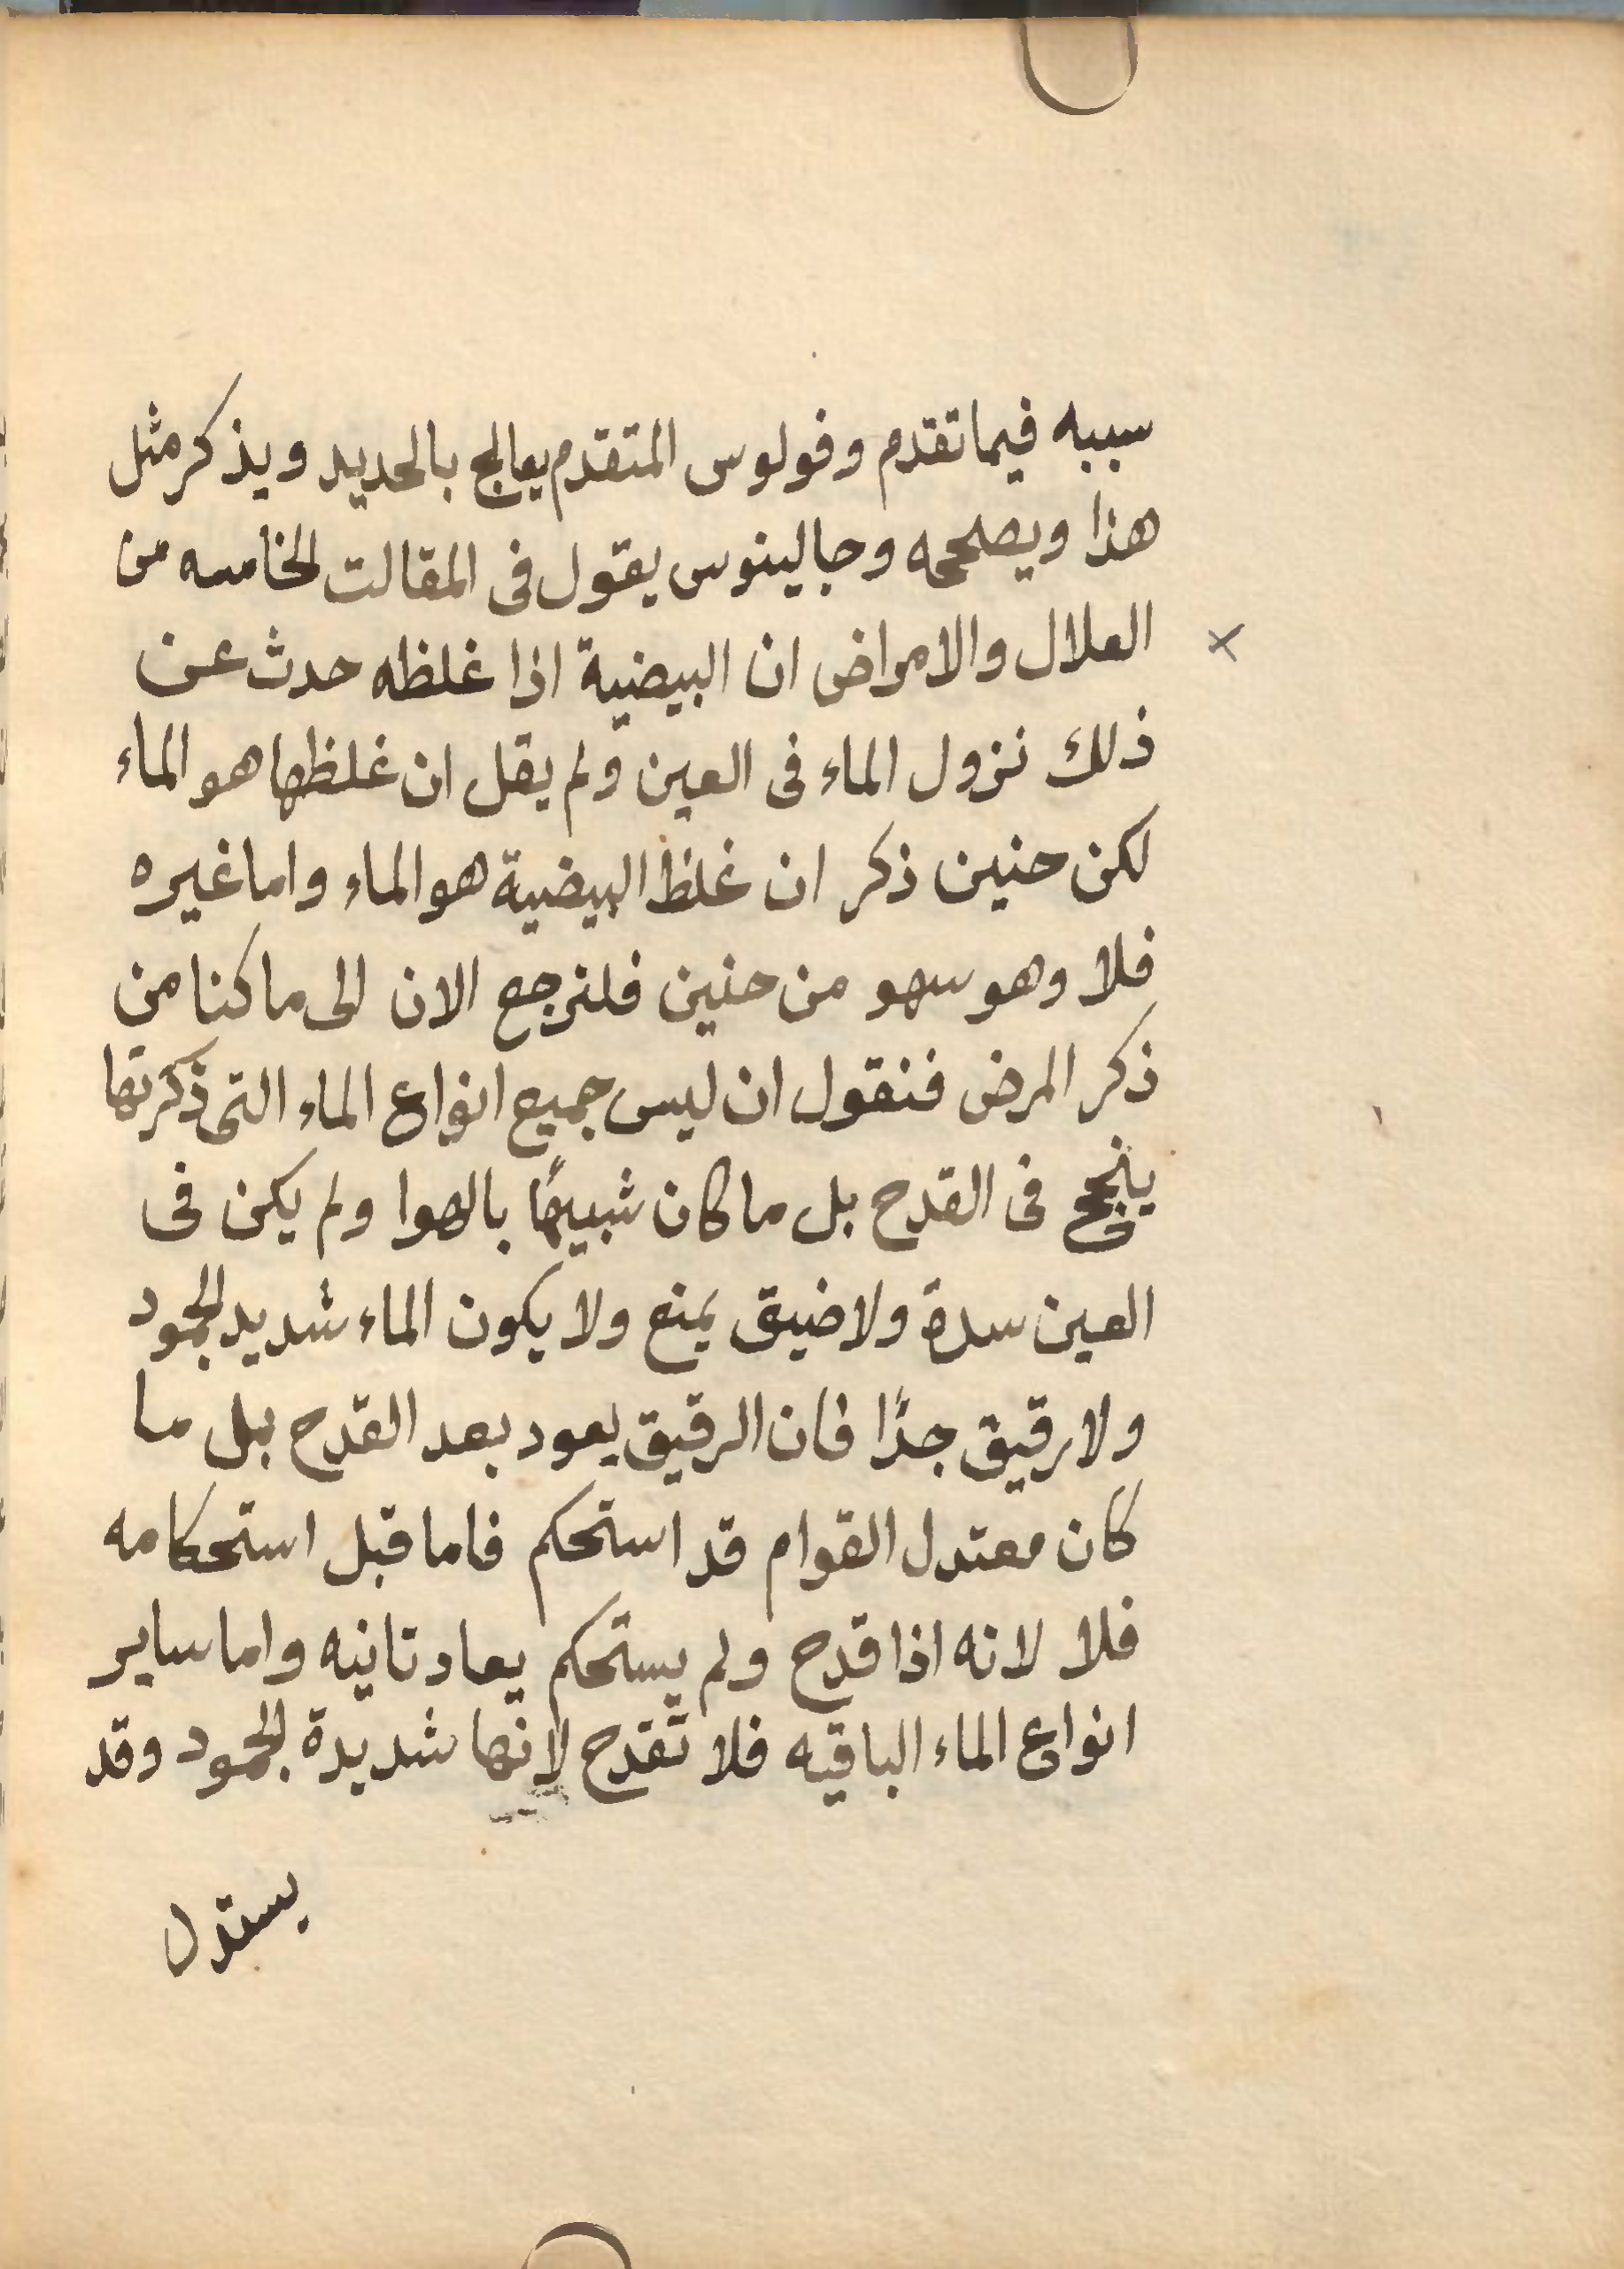 سببه فيما تقدم وفولوس المتقدم يعالج بالحديد ويذكر مثل
هذا ويصلححه وجالينوس يقول فى المقالت الخامسه من
العلال والامراض ان البيضية اذا غلظه حدث عن
ذلك نزول الماء فى العين ولم يقل ان غلظها هو الماء
لكن حنين ذكر ان غلظ البيضية هو الماء واما غيره
فلا وهو سهو من حنين فلنرجع الان الى ما كنا من
ذكر المرض فنقول ان ليس جميع انواع الماء التى ذكرتها
ينجح فى القدح بل ما كان شبيهًا بالهوا ولم يكن فى
العين سدة ولا ضيق يمنع ولا يكون الماء شديد الجمود
ولا رقيق جدًا فان الرقيق يعود بعد القدح بل ما
كان معتدل القوام قد استحكم فاما قبل استحكامه
فلا لانه اذا قدح ولم يستحكم يعاد تانيه واما ساير
انواع الماء الباقيه فلا تقدح لانها شديدة الجمود وقد
يستدل